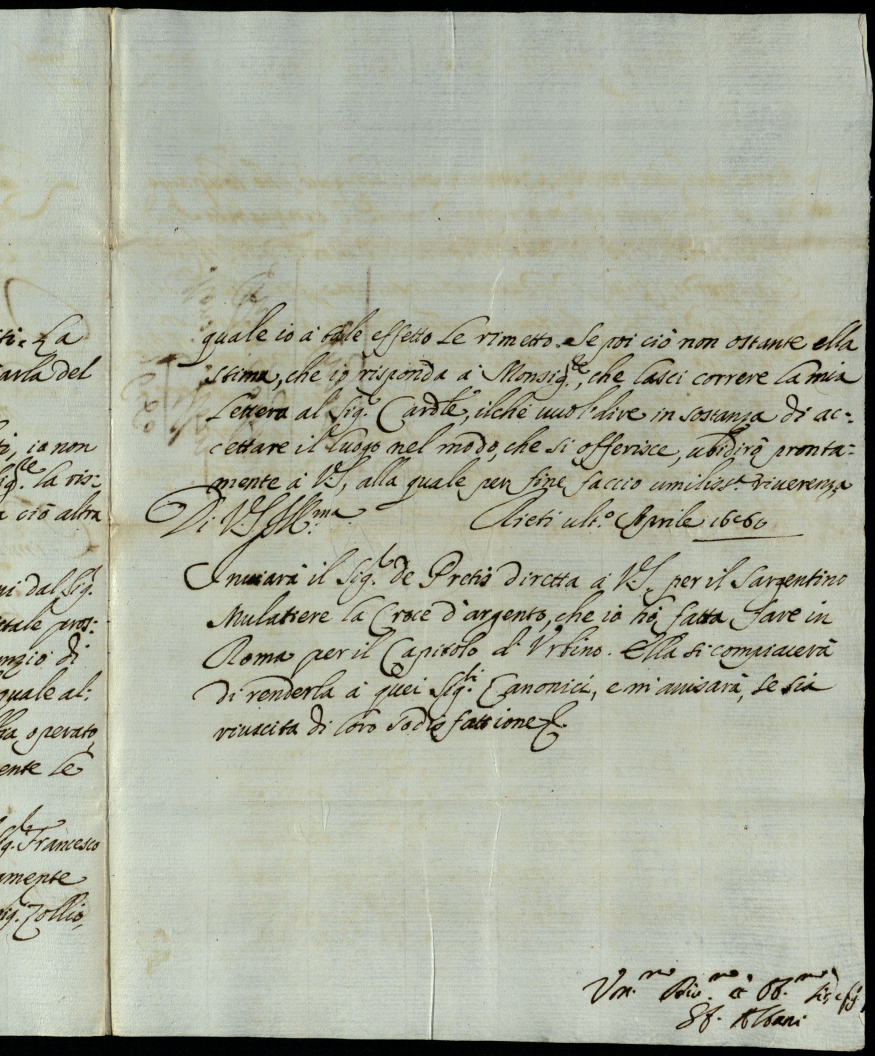 ti. La
arla del
o, io non
sig.re la ris:
a ciò altra
ni dal Sig.r
tale pros:
nzio di
quale al:
ha operato,
ente le
Sig.r Francesco
amente
sig. Zollio,
quale io à tale effetto Le rimetto. Se poi ciò non ostante ella
stima, che io risponda à Monsig.re, che lasci correre la mia
Lettera al Sig.r Cardle, ilche vuol dire in sostanza di ac:
cettare il luogo nel modo, che si offerisce, ubidirò pronta:
mente à V.S., alla quale per fine faccio umiliss.a riverenza
Di V.S. Ill.ma Rieti ult.o Aprile
Inviarà il Sig.r de Pretis diretta à V.S. per il Sargentino
Mulattiere la Croce d'argento, che io hò fatta fare in
Roma per il Capitolo d'Urbino. Ella si compiacerà
di renderla à quei Sig.ri Canonici, e m'avisarà, se sia
riuscita di loro sodisfattione &.
Um.mo Div.mo et Ob.mo
Albani